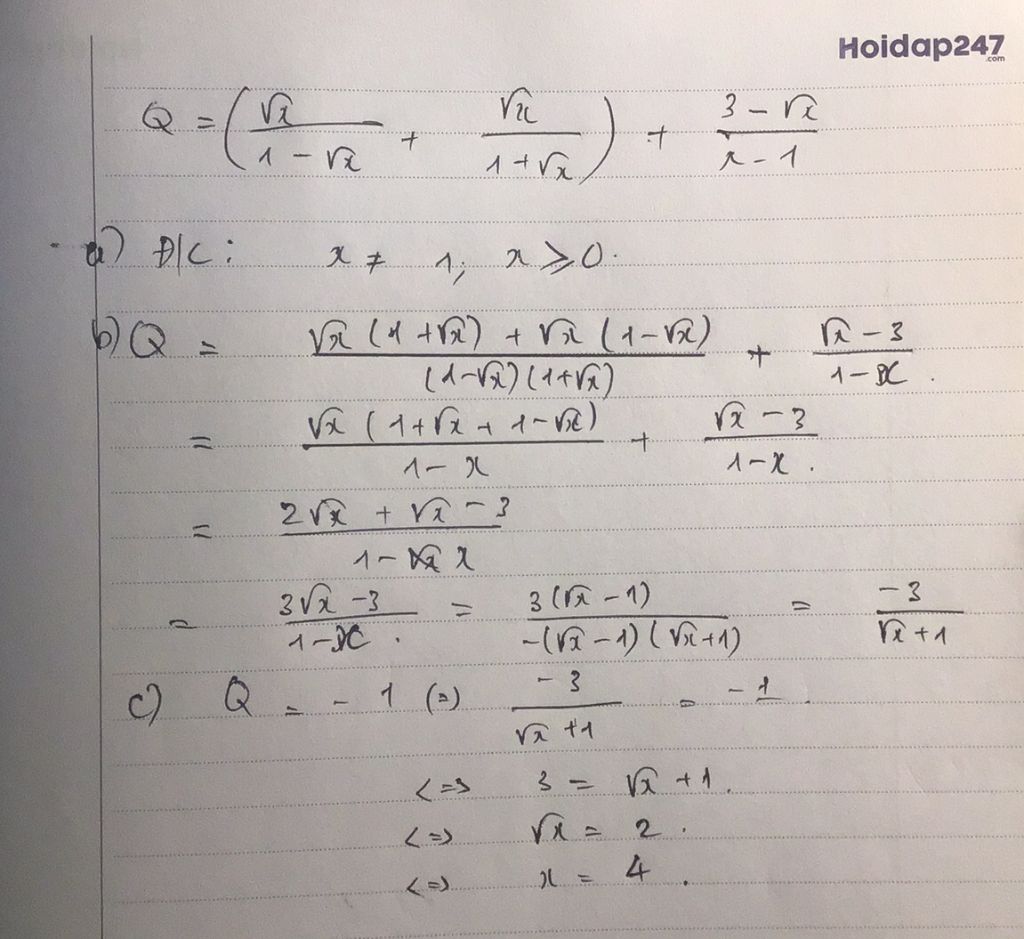 Hoidap247
.com
Q = ( √x / (1 - √x) + √x / (1 + √x) ) + (3 - √x) / (x - 1)
a) Đ/C : x ≠ 1; x ⩾ 0.
b) Q = (√x (1 + √x) + √x (1 - √x)) / ((1-√x)(1+√x)) + (√x - 3) / (1 - x) .
= (√x (1 + √x + 1 - √x)) / (1 - x) + (√x - 3) / (1 - x) .
= (2√x + √x - 3) / (1 - x)
= (3√x - 3) / (1 - x) . = 3(√x - 1) / (-(√x - 1)(√x + 1)) = -3 / (√x + 1)
c) Q = - 1 (=) -3 / (√x + 1) = - 1 .
<=> 3 = √x + 1 .
<=> √x = 2 .
<=> x = 4 .